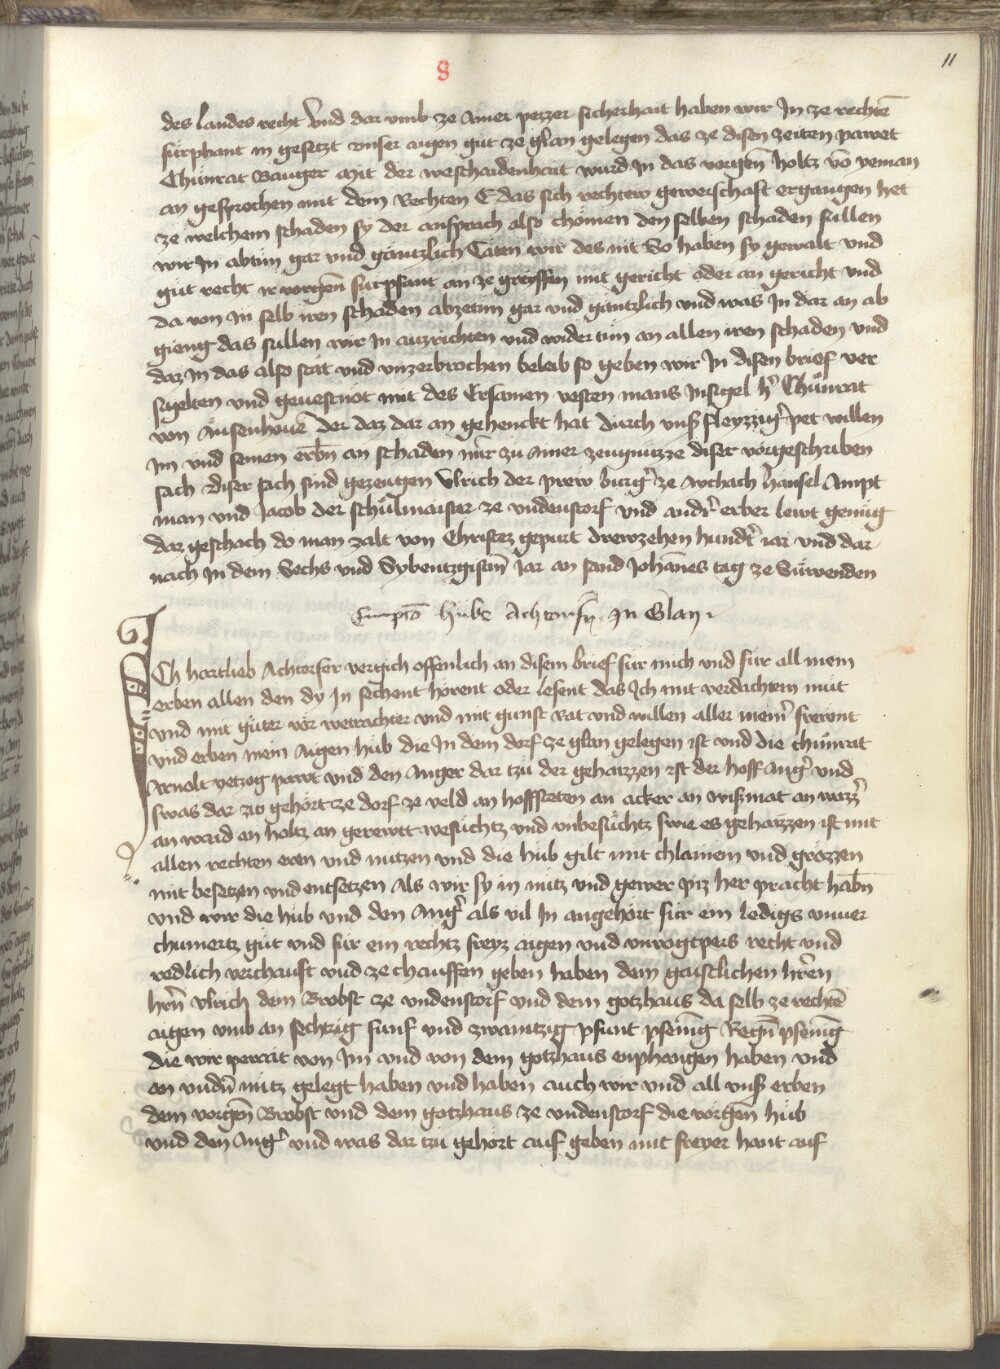 8
11
des landes recht Vnd dar vmb ze ainer pezzer sicherhait haben wir In ze rechtē
fürphant in gesetzt vnser aigen gut ze glan gelegen das ze disen zeiten pawet
Chunrat Mit der weschaidenhait wurd In das vorgen̄ holtz vō yeman
an gesprochen mit dem Rechten E das sich rechtew gewerschaft ergangen het
ze welchem schaden sy der ansprach also chomen den selben schaden sullen
wir In abtun gar vnd gäntzlich Täten wir des nit So haben sy gewalt vnd
gut recht ir vorgen̄ fürpfant an ze greyffen mit gericht oder an gericht vnd
da von In selb iren schaden abzetun gar vnd gäntzlich vnd was In dar an ab
gieng das sullen wir In auzrichten vnd wider tun an allen iren schaden vnd
daz In das also stät vnd vnzerbrochen beleib so geben wir In disen brief ver
sigelten vnd geuestnot mit des Ersamen vesten mans Insigel h̓ Chunrat
von Ausenhouē der daz dar an gehenckt hat durch vnß fleyzzig̓ pet willen
im vnd seinen erbn̄ an schaden nür zu ainer zeugnüzze diser vorgeschriben
sach Diser sach sind gezeugen Vlrich der prew burg̓ ze Aychach Hänsel Ampt
man vnd Jacob der schulmaister ze vndenstorf vnd and̓ erber lewt genug
daz geschach do man zalt von Christez gepurt drewzehen hund̓t iar vnd dar
nach In dem Sechs vnd Sybentzgistm̄ Jar an sand Johānes tag ze Suwenden
Empcō hube In Glan
ICh hartlieb Achtorfer vergich offenlich an disem brief für mich vnd für all mein
erben allen den dy In sehent hörent oder lesent das Ich mit verdachtem mut
vnd mit guter vor wetrachter vnd mit gunst rat vnd willen aller mein̓ frewnt
vnd erben mein Aigen hub die In dem dorf ze glan gelegen ist vnd die chunrat
Arnolt yetzog pawt vnd den Anger dar tzu der gehaizzen ist der hoff Ang̓ vnd
swas dar zu gehört ze dorf ze veld an hoffsteten an acker an wißmat an wazz̓
an waid an holtz an gerewtt wesuchtz vnd vnbesuchtz swie es gehaizzen ist mit
allen rechten eren vnd nutzen vnd die hub gilt mit chlainem vnd grozzen
mit besetzen vnd entsetzen Als wir sy in nütz vnd gewer piz her pracht habn̄
vnd wir die hub vnd den Ang̓ als vil In angehört für ein ledigs vnuer
chumertz gut vnd für ein rechtz freyz aigen vnd vnvogtpers recht vnd
redlich verchauft vnd ze chauffen geben haben dem gaistlichen h̓ren
hrn̄ Vlrich dem Brobst ze vndenstorf vnd dem gotzhaus da selb ze rechtē
aigen vmb an sechtzig funf vnd zwaintzig pfunt pfenīg Regn̄ pfenīg
die wir perait von Im vnd von dem gotzhaus enphangen haben vnd
an vnd̓n nütz gelegt haben vnd haben auch wir vnd all vnß erben
dem vorgen̄ Brobst vnd dem gotzhaus ze vndenstorf die vorgen̄ hub
vnd den Ang̓ vnd was dar tzu gehört auf geben mit freyer hant auf